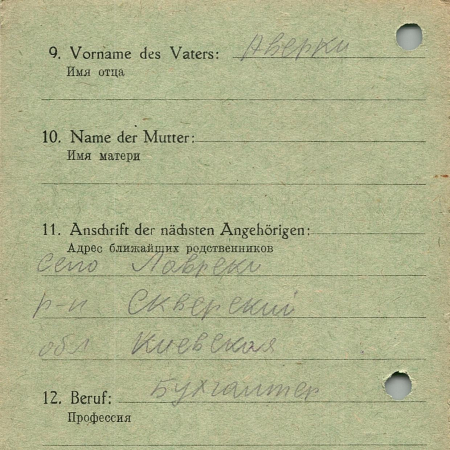 9. Vorname des Vaters: Аверки
Имя отца
10. Name der Mutter:
Имя матери
11. Anschrift der nächsten Angehörigen:
Адрес ближайших родственников
село Лавреки
р-н Скверский
обл Киевская
12. Beruf: Бухгалтер
Профессия